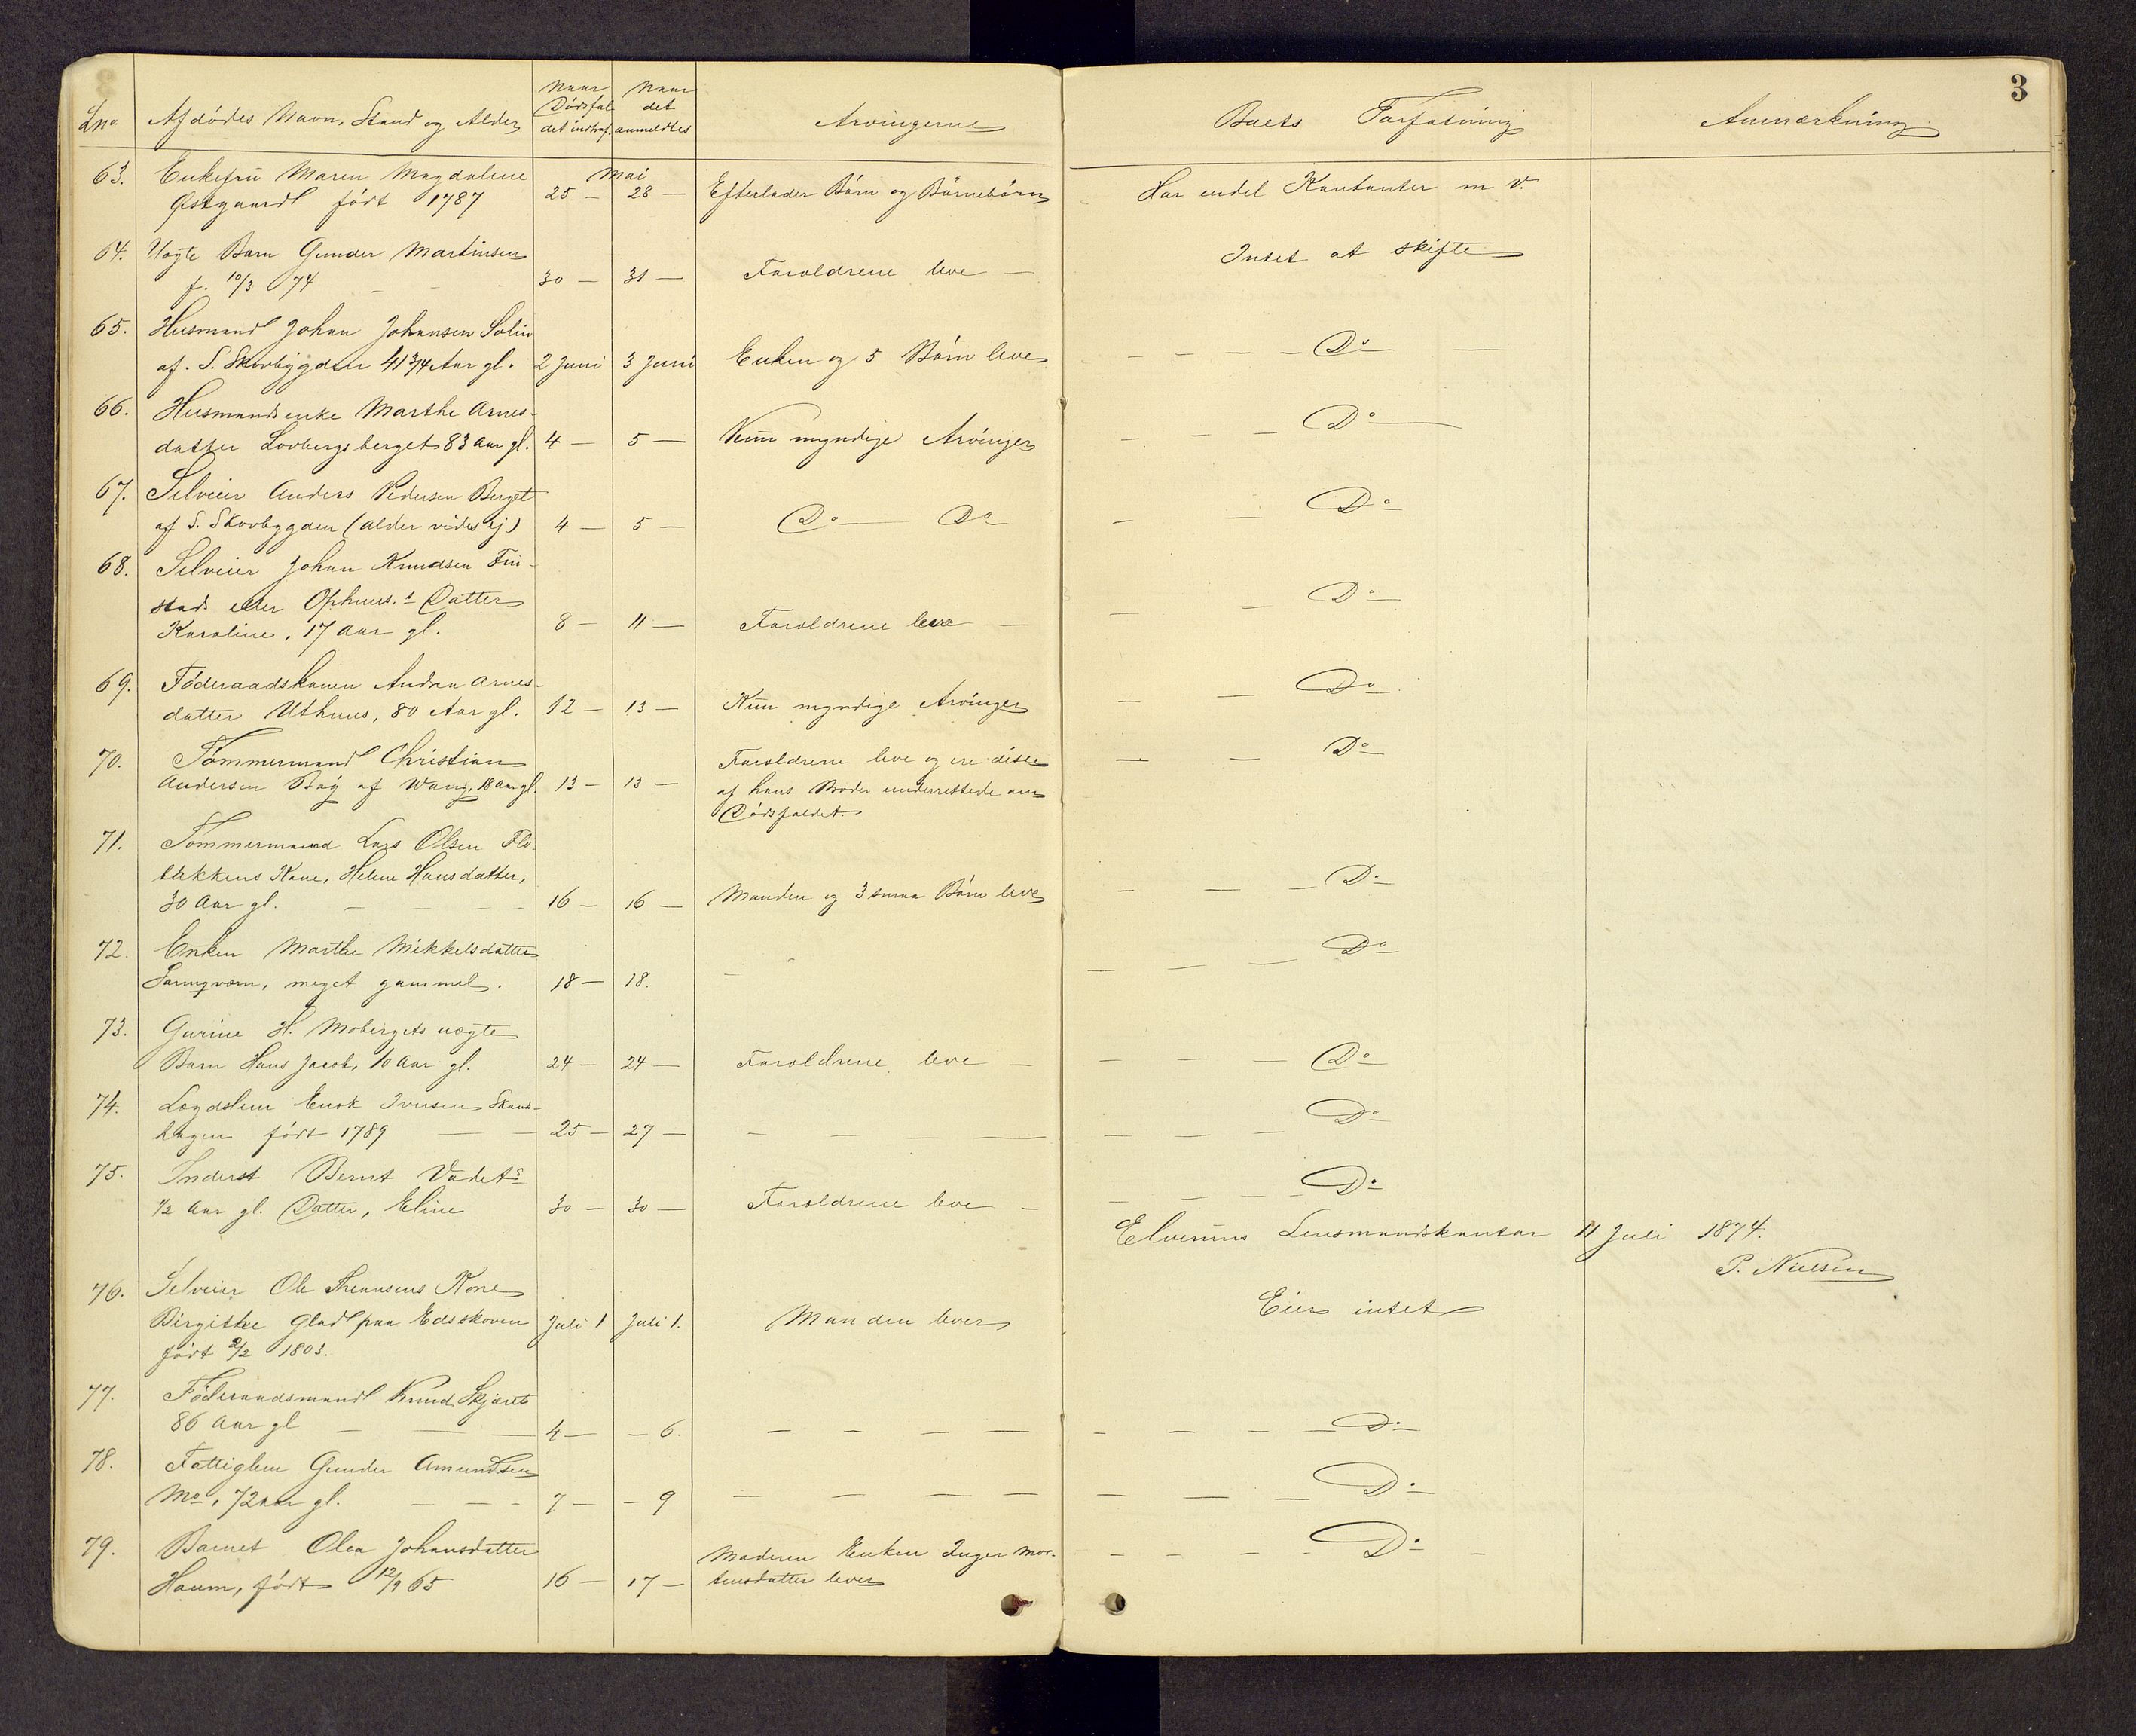 3
Lno. Afdödes Navn, Stand og Alder Naar Dödsfaldet indtraf. Naar det anmeldtes Arvingerne Boets Forfatning Anmærkning
63. Enkefru Maren Magdalene Mai
Østgaard født 1787 25 — 28 — Efterlader Børn og Børnebørn Har endel Kontanter m. v.
64. Uægte Barn Gunder Martinsen Intet at skifte
f. 10/3 74 — — — 30 — 31 — Forældrene leve —
65. Husmand Johan Johansen
af S. Skovbygden 41 3/4 Aar gl. 2 Juni 3 Juni Enken og 5 Børn leve — — — — Do —
66. Husmandsenke Marthe Arnes-
datter Lovbergsberget 83 Aar gl. 4 — 5 — Kun myndige Arvinger — — — Do —
67. Selveier Anders Pedersen Berget
af S. Skovbygden (alder vides ej) 4 — 5 — Do — Do — — Do
68. Selveier Johan Knudsen Fin-
stad eller Ophuus.s Datter
Karoline, 17 Aar gl. 8 — 11 — Forældrene leve — — — Do
69. Föderaadskonen Andrea Arnes-
datter Uthuus, 80 Aar gl. 12 — 13 — Kun myndige Arvinger — — Do
70. Tømmermand Christian Forældrene leve og ere disse — — Do
Andersen Bag af Wang, 18 Aar gl. 13 — 13 — af hans Broder underrettede om
Dødsfaldet.
71. Tømmermand Lars Olsen Flø-
bækkens Kone, Helene Hansdatter,
30 Aar gl. — — — — 16 — 16 — Manden og 3 smaa Børn leve — — — Do
72. Enken Marthe Mikkelsdatter
meget gammel. 18 — 18. — — — — Do
73. Gurine H. Mobergets uægte
Barn Hans Jacob, 10 Aar gl. 24 — 24 — Forældrene leve — — — — Do
74. Lægdslem Enok Iversen Skand-
hagen født 1789 — — 25 — 27 — — — — — — — — Do
75. Inderst Bernt Vadets
1/2 Aar gl. Datter, Eline 30 — 30 — Forældrene leve — — — — Do
Elverums Lensmandskontor 11 Juli 1874.
P. Nielsen
76. Selveier Ole Kone
Birgithe Glad paa Edsskoven Juli 1 Juli 1. Manden lever Eier intet
født 2/2 1803.
77. Föderaadsmand Knud Skjæret
86 Aar gl — — — 4 — — 6. — — — — — — — — Do
78. Fattiglem Gunder Amundsen
Mo, 72 Aar gl. — — — 7 — — 9 — — — — — — — Do
79. Barnet Olea Johansdatter Moderen Enken Inger Mor-
Haum, født 12/9 65 16 — 17 — tensdatter lever — — — — Do —